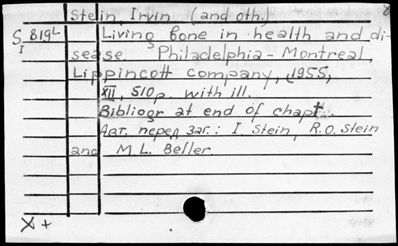 Stein, Irvin (and oth.) 8
S 819L Living bone in health and di-
I
sease. Philadelphia - Montreal,
Lippincott company, 1955,
XII, 510p. with ill.
Bibliogr at end of chapt.
Авт. перед заг.: I Stein, R.O. Stein
and M.L. Beller
X +